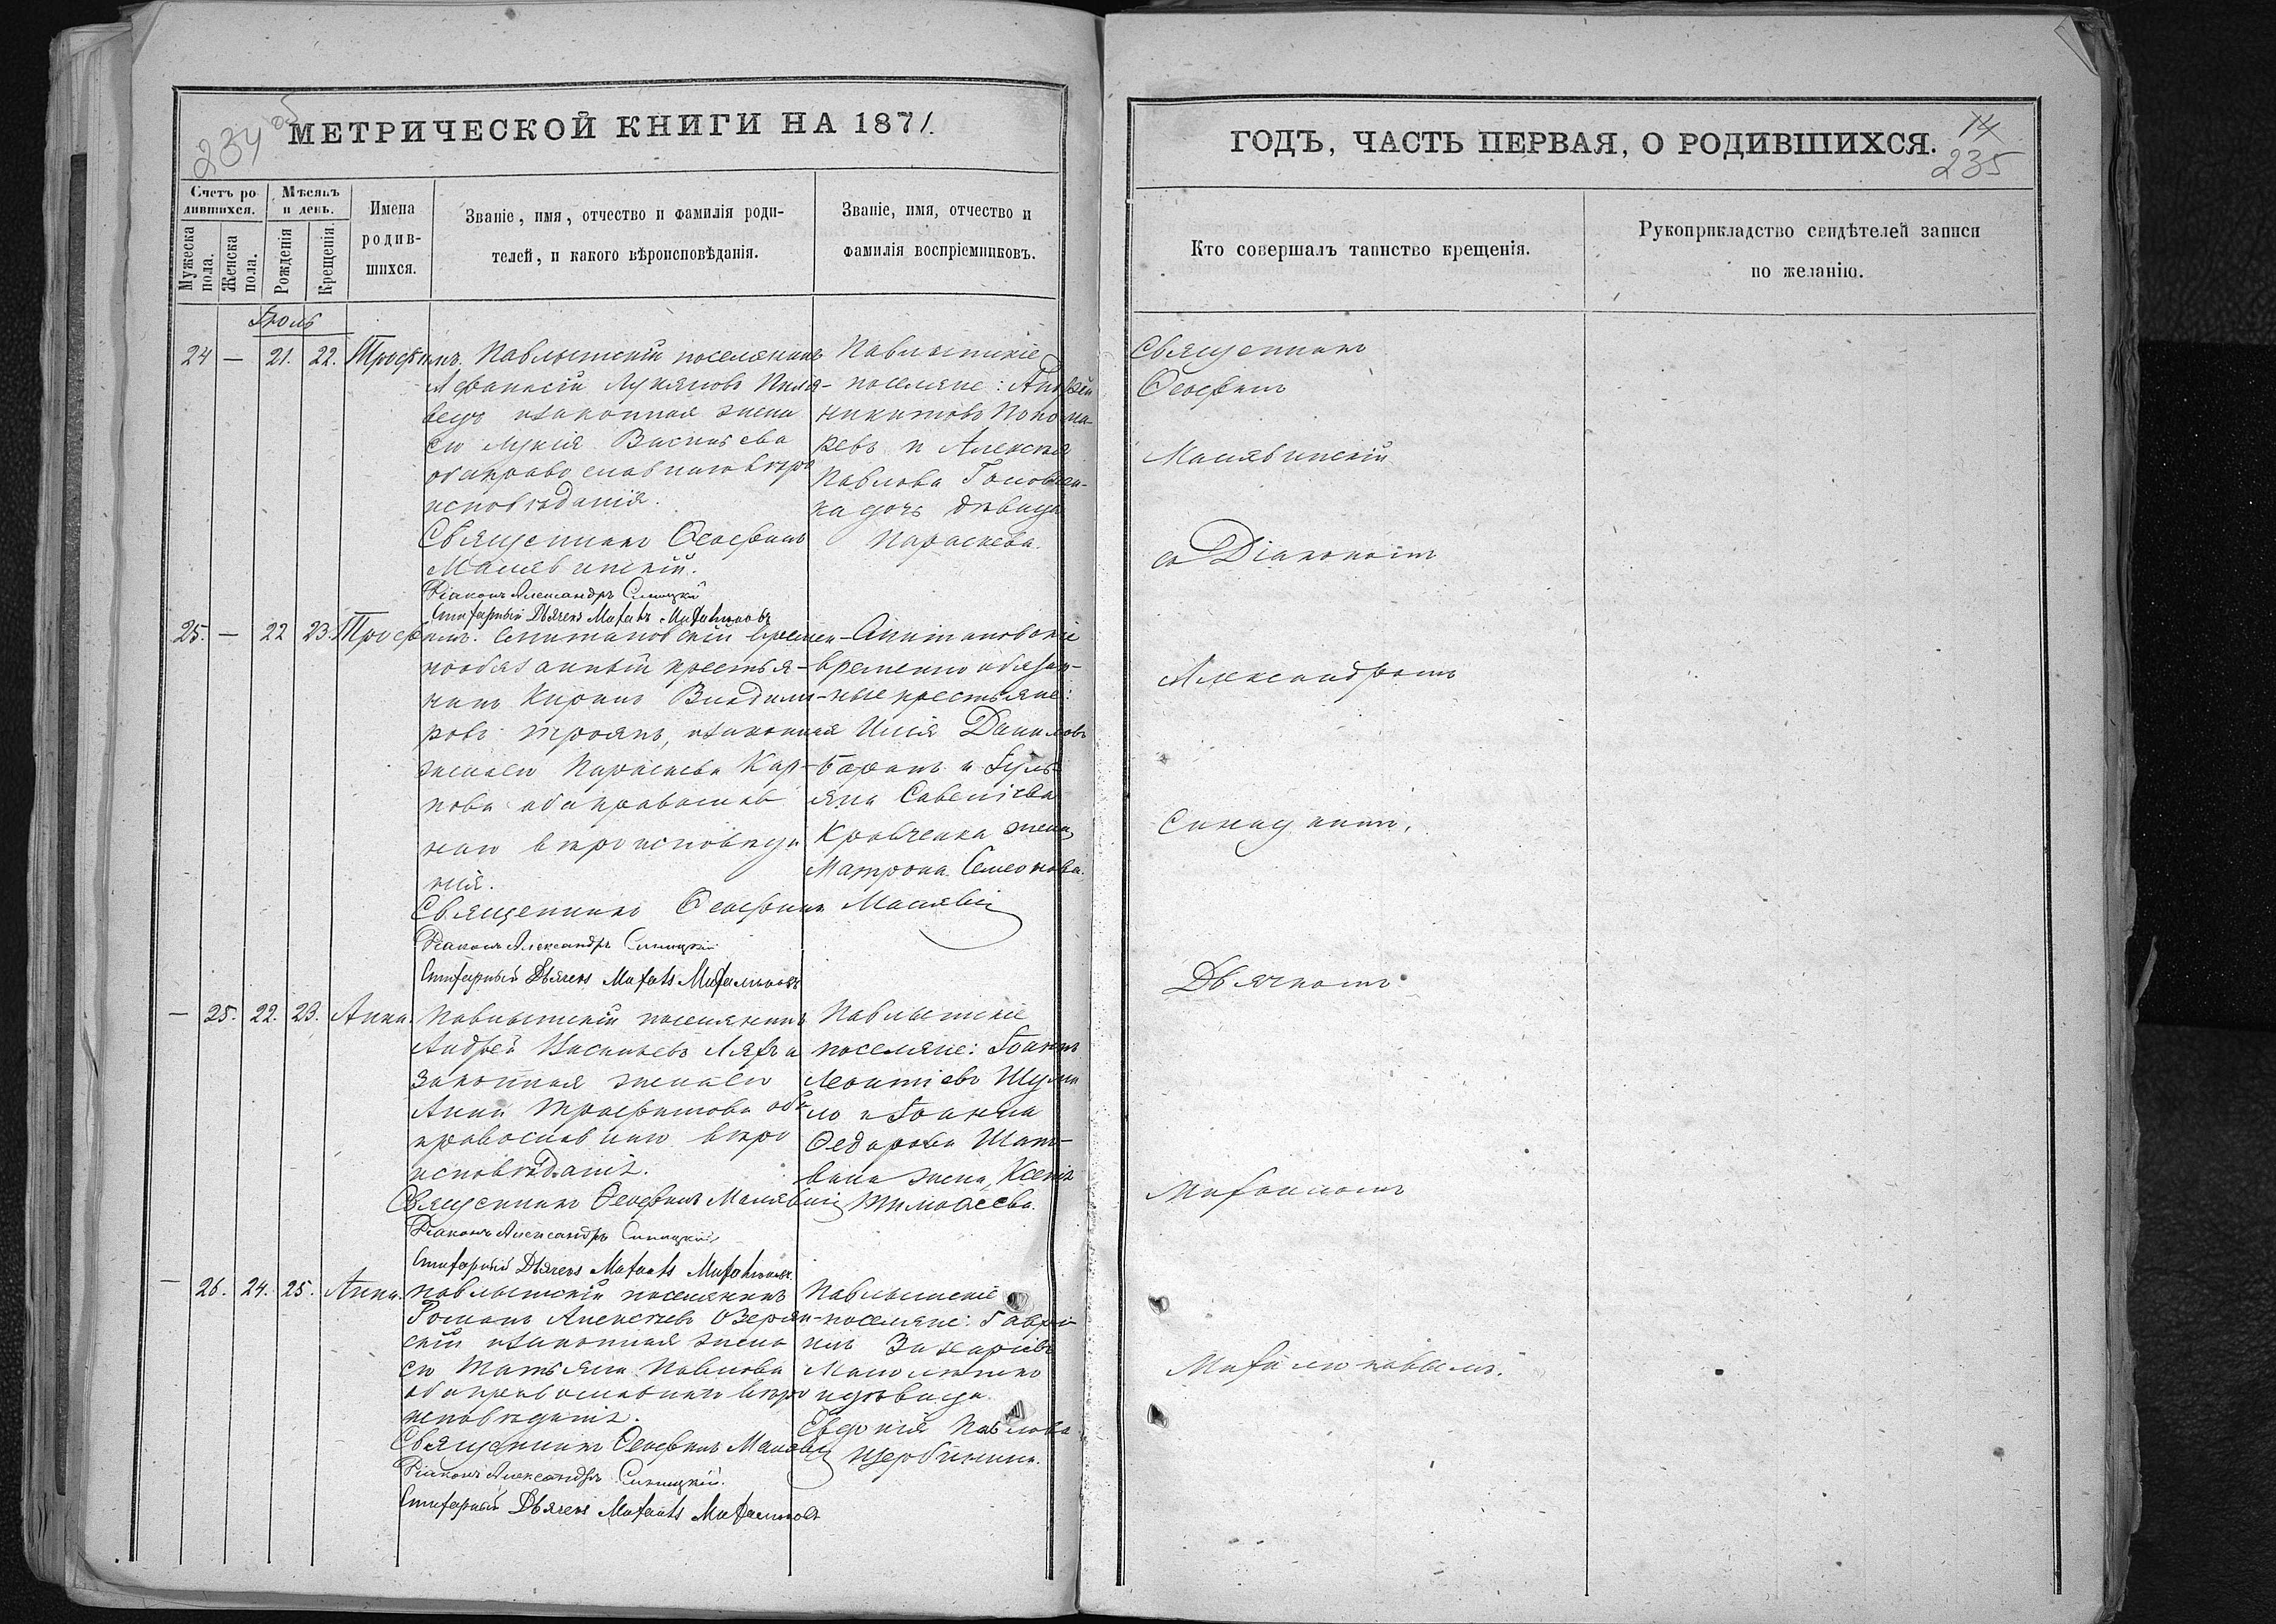 234 об
МЕТРИЧЕСКОЙ КНИГИ НА 1871.
Счетъ ро
дившихся.
Мѣсяцъ
и день.
Мужеска
пола.
Женска
пола.
Рожденія
Крещенія.
Имена
родив-
шихся.
Званіе, имя, отчество и фамилія роди-
телей, и какого вѣроисповѣданія.
Званіе, имя, отчество и
фамилія воспріемниковъ.
Іюль
24 — 21. 22. Трофимъ.
Павлышскій поселянинъ
Афанасій Лукяновъ
и законная жена
его Лукія Васильева
оба православнаго вѣро
исповѣданія.
Священникъ Ѳеофанъ
Манявинскій.
Діаконъ Александръ Синицкій
Стихарный Дьячекъ
Павлышскіе
поселяне: Андрей
Никитовъ Понома-
ревъ и Алексѣя
Павлова Головчен-
ка дочь дѣвица
Параскева.
25. — 22 23. Трофимъ.
времен-
нообязанный крестья-
нинъ Карпъ Владими-
ровъ Троянъ, и законная
жена его Параскева Кар-
пова оба православ
наго вѣроисповѣда
нія.
Священникъ Ѳеофанъ
Діаконъ Александръ Синицкій
Стихарный Дьячекъ
временно обязан-
ные крестьяне:
Илія Даниловъ
Баранъ и Іуль
яна Савеліева
Кравченка жена,
Матрона Семеонова.
— 25. 22. 23. Анна.
Павлышскій поселянинъ
Андрей Васильевъ Ляхъ и
законная жена его
Анна Трофимова оба
православнаго вѣро
исповѣданія.
Священникъ Ѳеофанъ
Діаконъ Александръ Синицкій
Стихарный Дьячекъ
Павлышскіе
поселяне: Іоаннъ
Леонтіевъ Шули
ло и Іоанна
Ѳедорова Шапо-
вала жена, Ксенія
Тимоѳеева.
— 26. 24. 25. Анна.
Павлышскій поселянинъ
Романъ Алексѣевъ Озерян-
скій и законная жена
его Татьяна Павлова
оба православнаго вѣро
исповѣданія.
Священникъ Ѳеофанъ
Діаконъ Александръ Синицкій.
Стихарный Дьячекъ
Павлышскіе
поселяне: Гаврі-
илъ Захаріевъ
и дѣвица
Евдокія Павлова
ГОДЪ, ЧАСТЬ ПЕРВАЯ, О РОДИВШИХСЯ.
14
235
Кто совершалъ таинство крещенія.
Рукоприкладство свидѣтелей записи
по желанію.
Священникъ
Ѳеофанъ
Манявинскій
съ Діакономъ
Александромъ
Синицкимъ,
Дьячкомъ